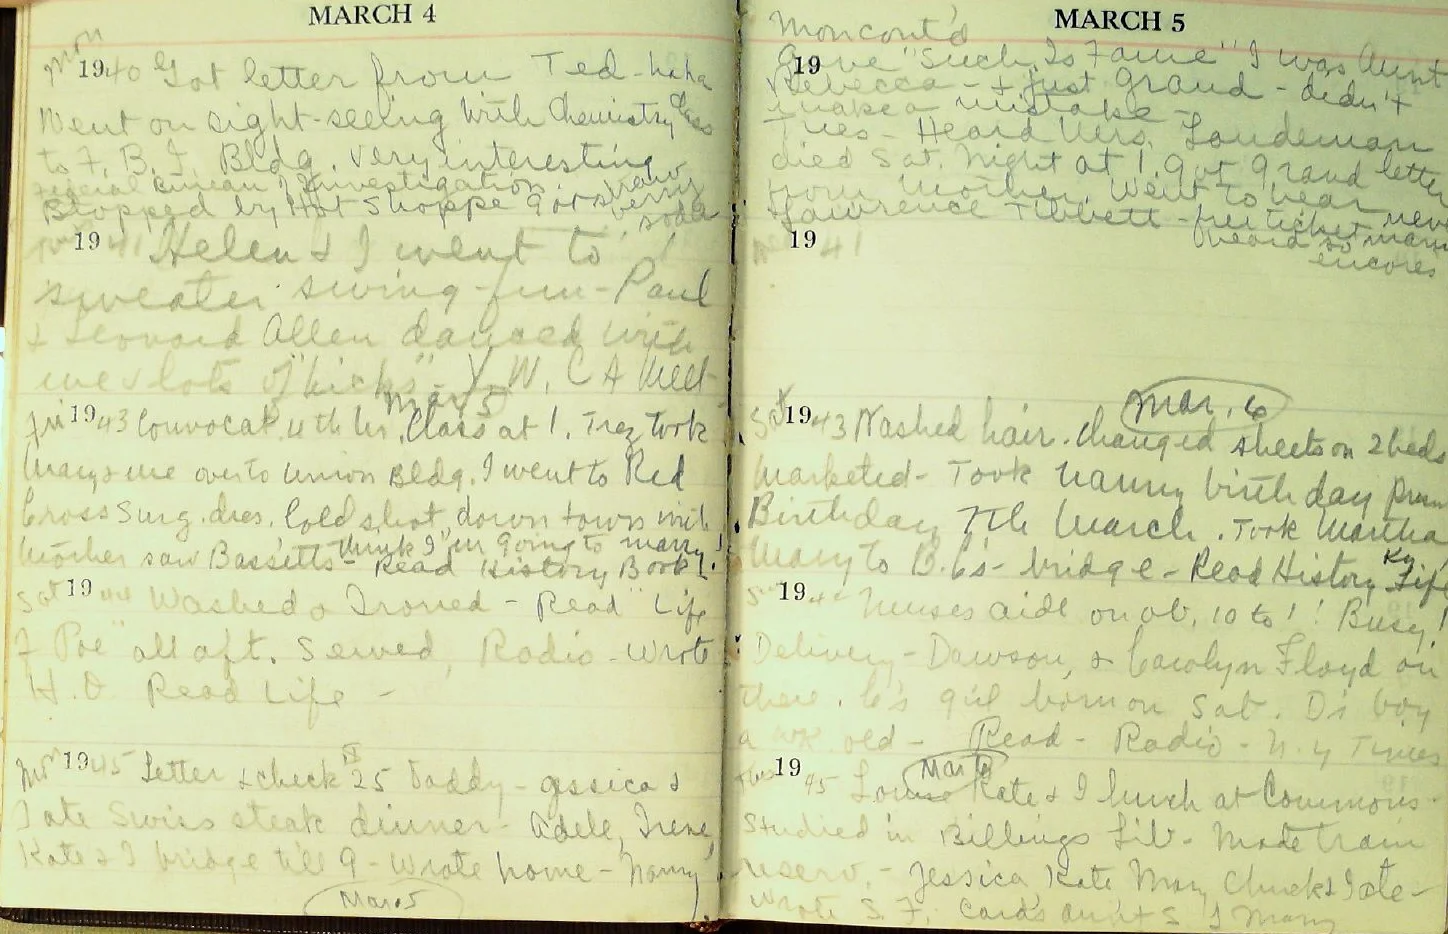 MARCH 4
Mon
1940 Got letter from Ted - haha
Went on sight-seeing with Chemistry Class
to F. B. I. Bldg. very interesting
Federal Bureau of Investigation
Stopped by Hot Shoppe Got straw
berry
soda
1941 Helen & I went to
sweater swing - fun - Paul
& Leonard Allen danced with
me & lots of "hicks" - Y. W. C A Meet
Mar 5
Fri 1943 Convocat. 4th hr. Class at 1. Trez took
Mary & me over to Union Bldg. I went to Red
Cross Surg. dres. Cold shot, down town with
Mother saw Bassetts - think I'm going to marry!
Read History Book!
Sat 1944 Washed & Ironed - Read "Life
of Poe" all aft. Served, Radio - wrote
H. O. Read Life -
1945 Letter & check 25 Daddy - Jessica &
I ate Swiss steak dinner - Adele, Irene,
Kate & I bridge till 9 - Wrote home - Nanny
Mar 5
MARCH 5
Mon cont'd
19 Gave "Such Is Fame" I was Aunt
Rebecca - & just grand - didn't
make a mistake -
Tues - Heard Mrs. Loudeman
died Sat. night at 1. Got grand letter
from Mother. Went to hear
Lawrence Tibbett - free ticket never
heard so many
encores
1941
Mar. 6
Sat 1943 Washed hair. Changed sheets on 2 beds
Marketed - Took Nanny birthday
Birthday 7th March. Took Martha
Mary to B. G's - bridge - Read History Ky. Life
19 Nurses aide on ob. 10 to 1! Busy!
Delivery - Dawson, & Carolyn Floyd on
there. C's girl born on Sat. D's boy
a wk old - Read - Radio - N. Y Times
Mar 6
1945 Louise Kate & I lunch at Commons.
Studied in Billings Lib - Made train
reserv. - Jessica Kate Mary Chuck & I ate -
Wrote S. F. Cards Aunt S.